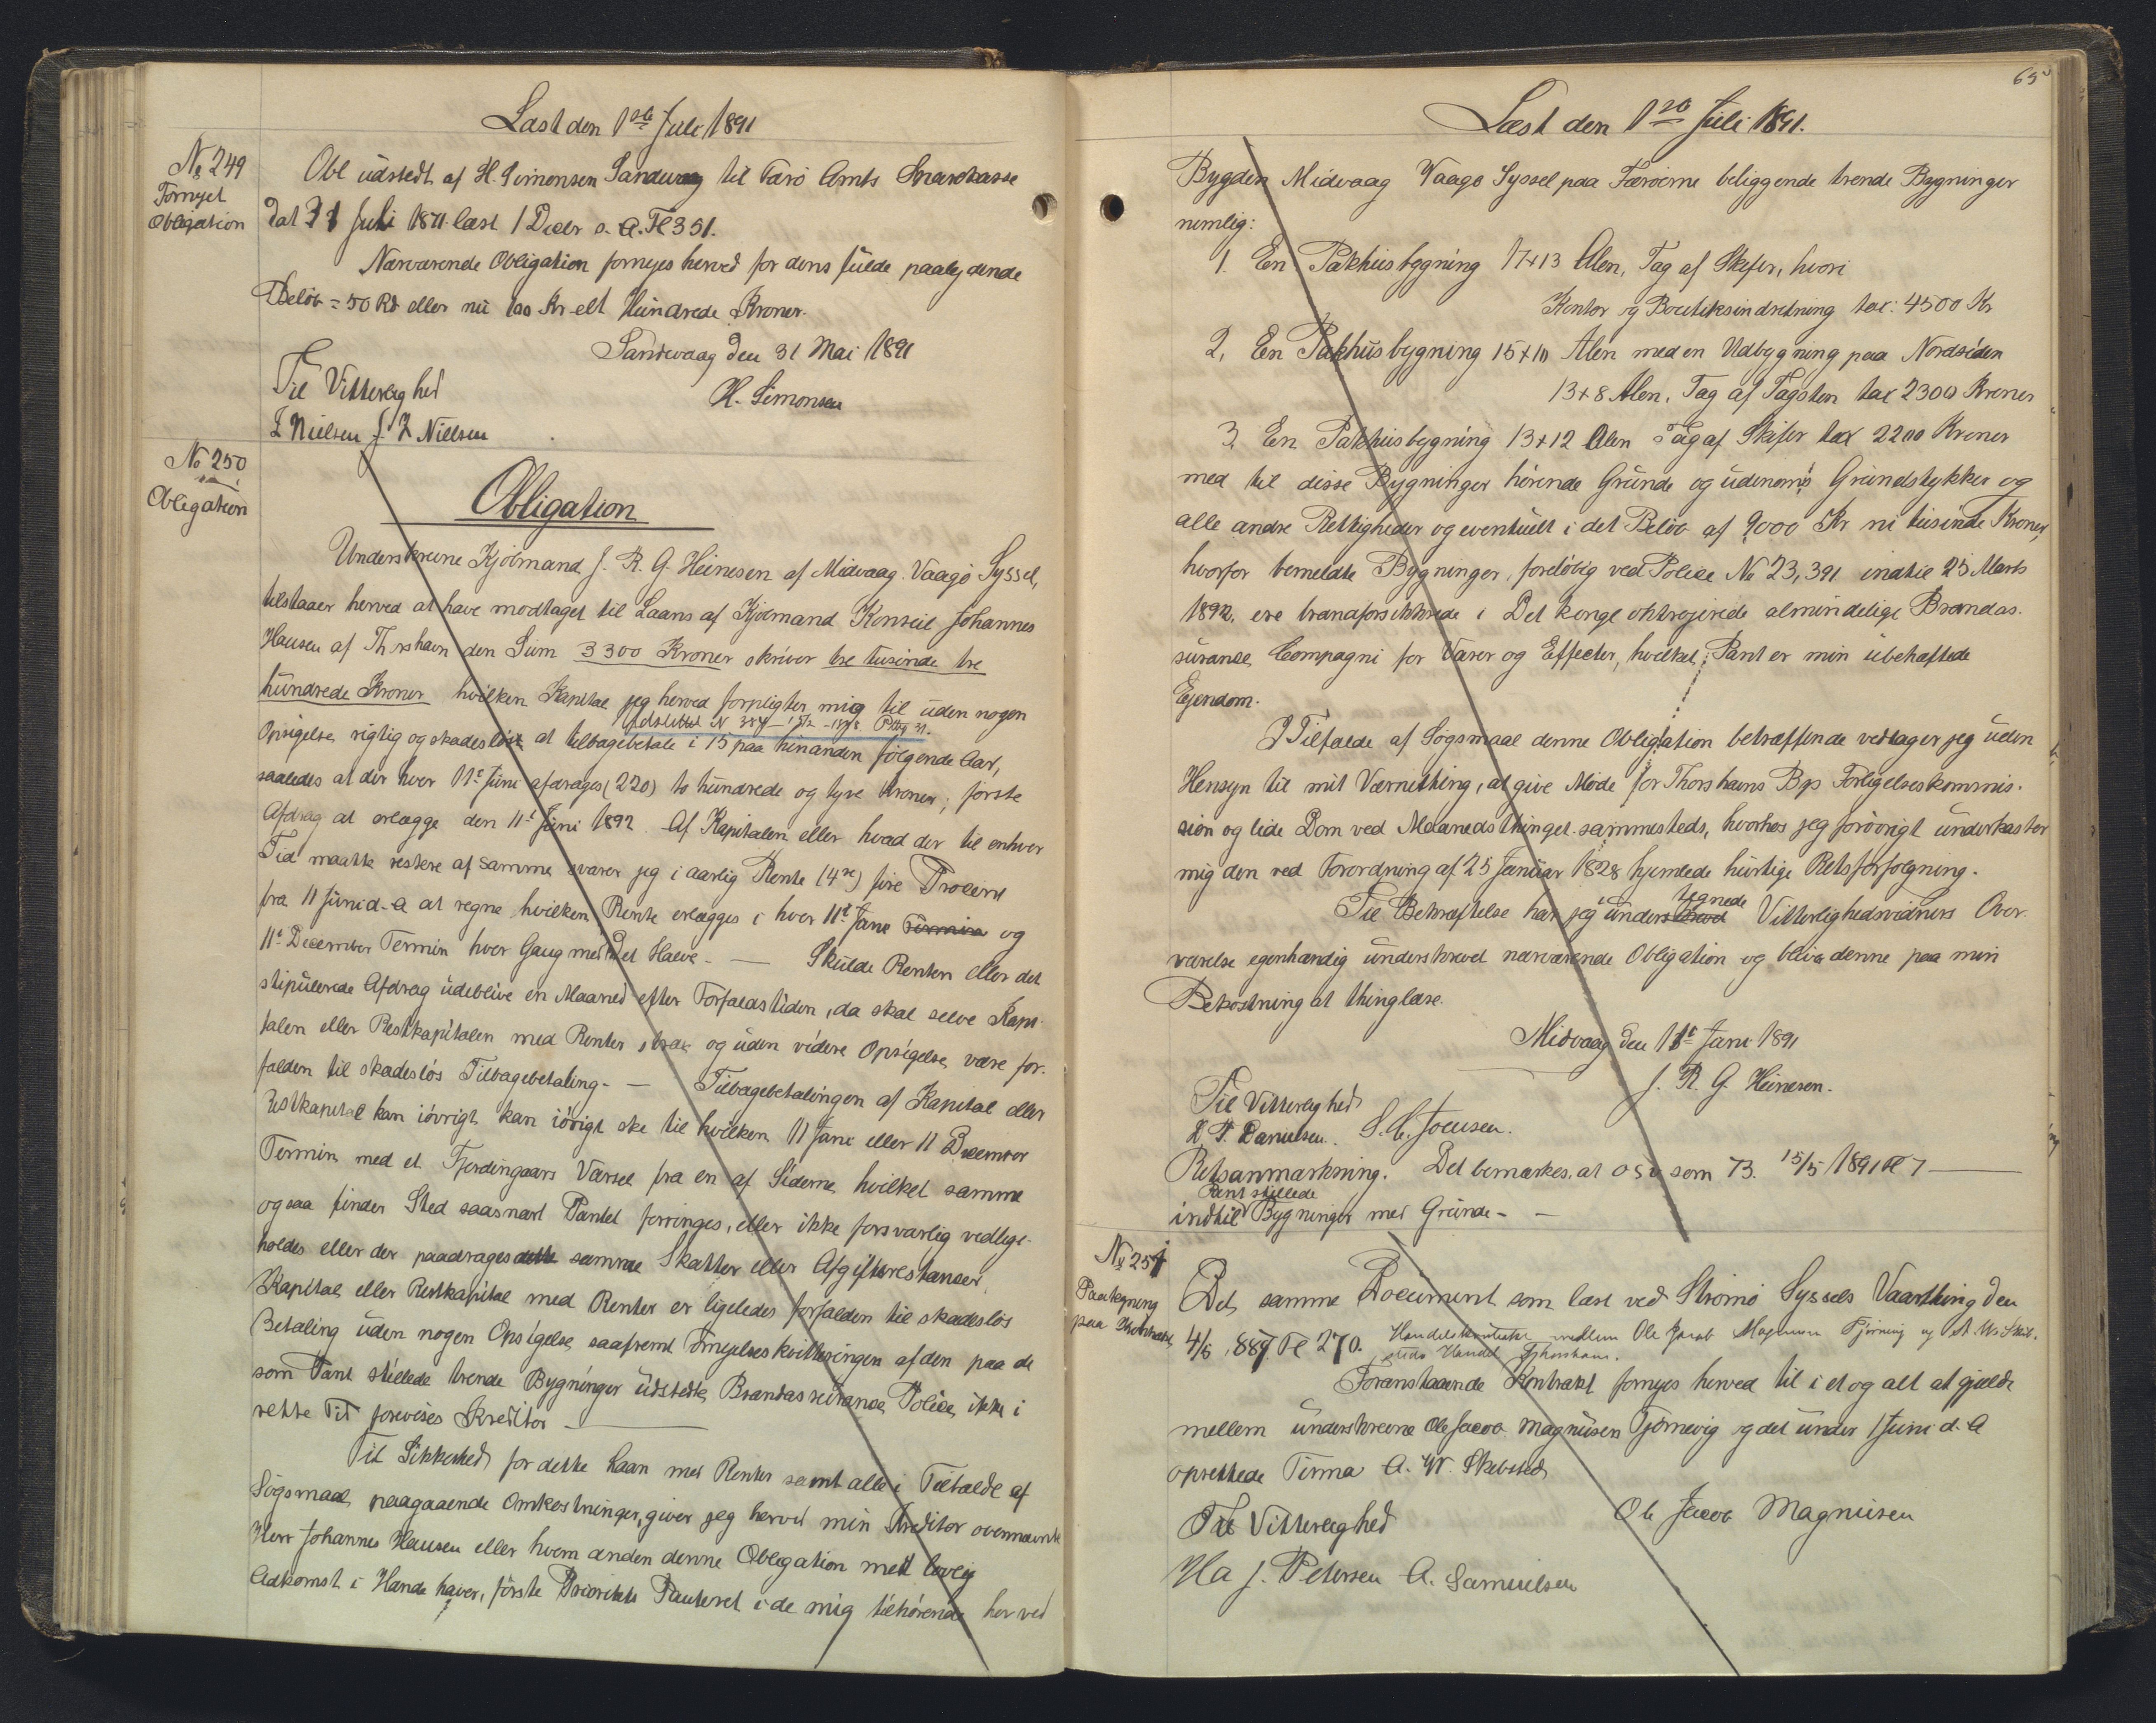 Læst den 1ste Juli 1891
No 249
Fornyet
Obligation
Obl udstedt af H. Simonsen Sandevaag til Færö Amts Sparekasse
dat 31 Juli 1871 læst 1 Decbr s. A. Fl 351.
Nærværende Obligation fornyes herved for dens fulde paalydende
Beløb = 50 Rd eller nu 100 Kr ett Hundrede Kroner.
Sandevaag den 31 Mai 1891
Til Vitterlighed
H. Simonsen
Z Nielsen J. Z Nielsen
No 250
Obligation
Obligation
Underskrevne Kjøbmand J. R. G. Heinesen af Midvaag Vaagø Syssel,
tilstaaer herved at have modtaget til Laans af Kjøbmand Konsul Johannes
Hansen af Thorshavn den Sum 3300 Kroner skriver tre tusinde tre
hundrede Kroner hvilken Kapital jeg herved forpligter mig til uden nogen
Opsigelse rigtig og skadesløst at tilbagebetale i 15 paa hinanden følgende Aar,
saaledes at der hver 11te Juni afdrages (220) to hundrede og tyve Kroner; første
Afdrag at erlægge den 11te Juni 1892. Af Kapitalen eller hvad der til enhver
Tid maatte restere af samme svarer jeg i aarlig Rente (4re) fire Procent
fra 11 Juni d. A at regne, hvilken Rente erlægges i hver 11te Juni Termin og
11te December Termin hver Gang med det Halve. — Skulde Renten eller det
stipulerede Afdrag udeblive en Maaned efter Forfaldstiden, da skal selve Kapi-
talen eller Restkapitalen med Renter strax og uden videre Opsigelse være for-
falden til skadesløs Tilbagebetaling. — Tilbagebetalingen af Kapital eller
Restkapital kan iøvrigt kan iøvrigt ske til hvilken 11 Juni eller 11 December
Termin med et Fjerdingaars Varsel fra en af Siderne, hvilket samme
ogsaa finder Sted saasnart Pantet forringes, eller ikke forsvarlig vedlige-
holdes eller der paadrages dette samme Skatter eller Afgiftsrestancer
Kapital eller Restkapital med Renter er ligeledes forfalden til skadesløs
Betaling uden nogen Opsigelse saafremt Fornyelseskvitteringen af den paa de
som Pant stillede trende Bygninger udstedte Brandassurance Police, ikke i
rette Tid forevises Kreditor —
Til Sikkerhed for dette Laan med Renter samt alle i Tilfælde af
Søgsmaal paagaaende Omkostninger, giver jeg herved min Kreditor ovennævnte
Herr Johannes Hansen eller hvem anden denne Obligation med lovlig
Adkomst i Hænde haver, første Prioritets Panteret i de mig tilhørende her ved
65
Læst den 1ste Juli 1891.
Bygden Midvaag Vaagø Syssel paa Færøerne beliggende trende Bygninger
nemlig:
1. En Pakhusbygning 17 x 13 Alen, Tag af Skifer, hvori
Kontor og Boutiksindretning tax: 4500 Kr
2, En Pakhusbygning 15 x 10 Alen med en Udbygning paa Nordsiden
13 x 8 Alen, Tag af Tagsten tax 2300 Kroner
3, En Pakhusbygning 13 x 12 Alen Tag af Skifer tax 2200 Kroner
med til disse Bygninger hørende Grunde og udenoms Grundstykker og
alle andre Rettigheder og eventuelt i det Beløb af 9000 Kr ni tusinde Kroner,
hvorfor bemeldte Bygninger, foreløbig ved Police No 23,391 indtil 25 Marts
1892, ere brandforsikkrede i Det kongl oktrojerede almindelige Brandas-
surance Compagni for Varer og Effecter, hvilket Pant er min ubehæftede
Ejendom.
I Tilfælde af Søgsmaal denne Obligation betræffende vedtager jeg uden
Hensyn til mit Værnething, at give Møde for Thorshavns Byes Forligelseskommis-
sion og lide Dom ved Maanedsthinget sammesteds, hvorhos jeg forøvrigt underkaster
mig den ved Forordning af 25 Januar 1828 hjemlede hurtige Retsforfølgning.
Til Bekræftelse har jeg under tegnede Vitterlighedsvidners Over-
værelse egenhændig underskrevet nærværende Obligation og bliver denne paa min
Bekostning at thinglæse.
Midvaag den 11te Juni 1891
J. R. G. Heinesen.
Til Vitterlighed
D. P. Danielsen. S. C. Joensen.
Retsanmærkning. Det bemærkes, at osv som 73. 15/5 1891 Fl 7 —
Pant stillede
indtil Bygninger med Grunde —
No 251
Paategning
paa Kontrakt
Det samme Document som læst ved Strømø Syssels Vaarthing den
4/6 1887 Fl 270.
Foranstaaende Kontrakt fornyes herved til i et og alt at gjælde
mellem underskrevne Ole Jacob Magnusen Tjørnevig og det under 1 Juni d. A
oprettede Firma A. W. Skibsted
Ole Jacob Magnusen
Til Vitterlighed
Ha J. Petersen A. Samuelsen